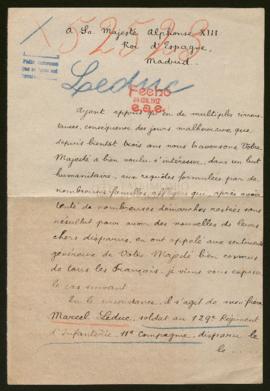 x 52523
A Sa Majesté Alphonse XIII
Roi d'Espagne,
Madrid.
Leduc
Fecho
Ayant appris qu'en de multiples circons-
tances, conséquence des jours malheureux que
depuis bientôt trois ans nous traversons Votre
Majesté a bien voulu s'intéresser, dans un but
humanitaire, aux requêtes formulées par de
nombreuses familles affligées qui, après avoir
tenté de nombreuses démarches restées sans
résultat pour avoir des nouvelles de leurs
chers disparus, en ont appelé aux sentiments
généreux de Votre Majesté bien connus
de tous les Français, je viens vous exposer
le cas suivant
En la circonstance, il s'agit de mon frère
Marcel Leduc, soldat au 129e Régiment
d'Infanterie, 11e Compagnie, disparu le
le